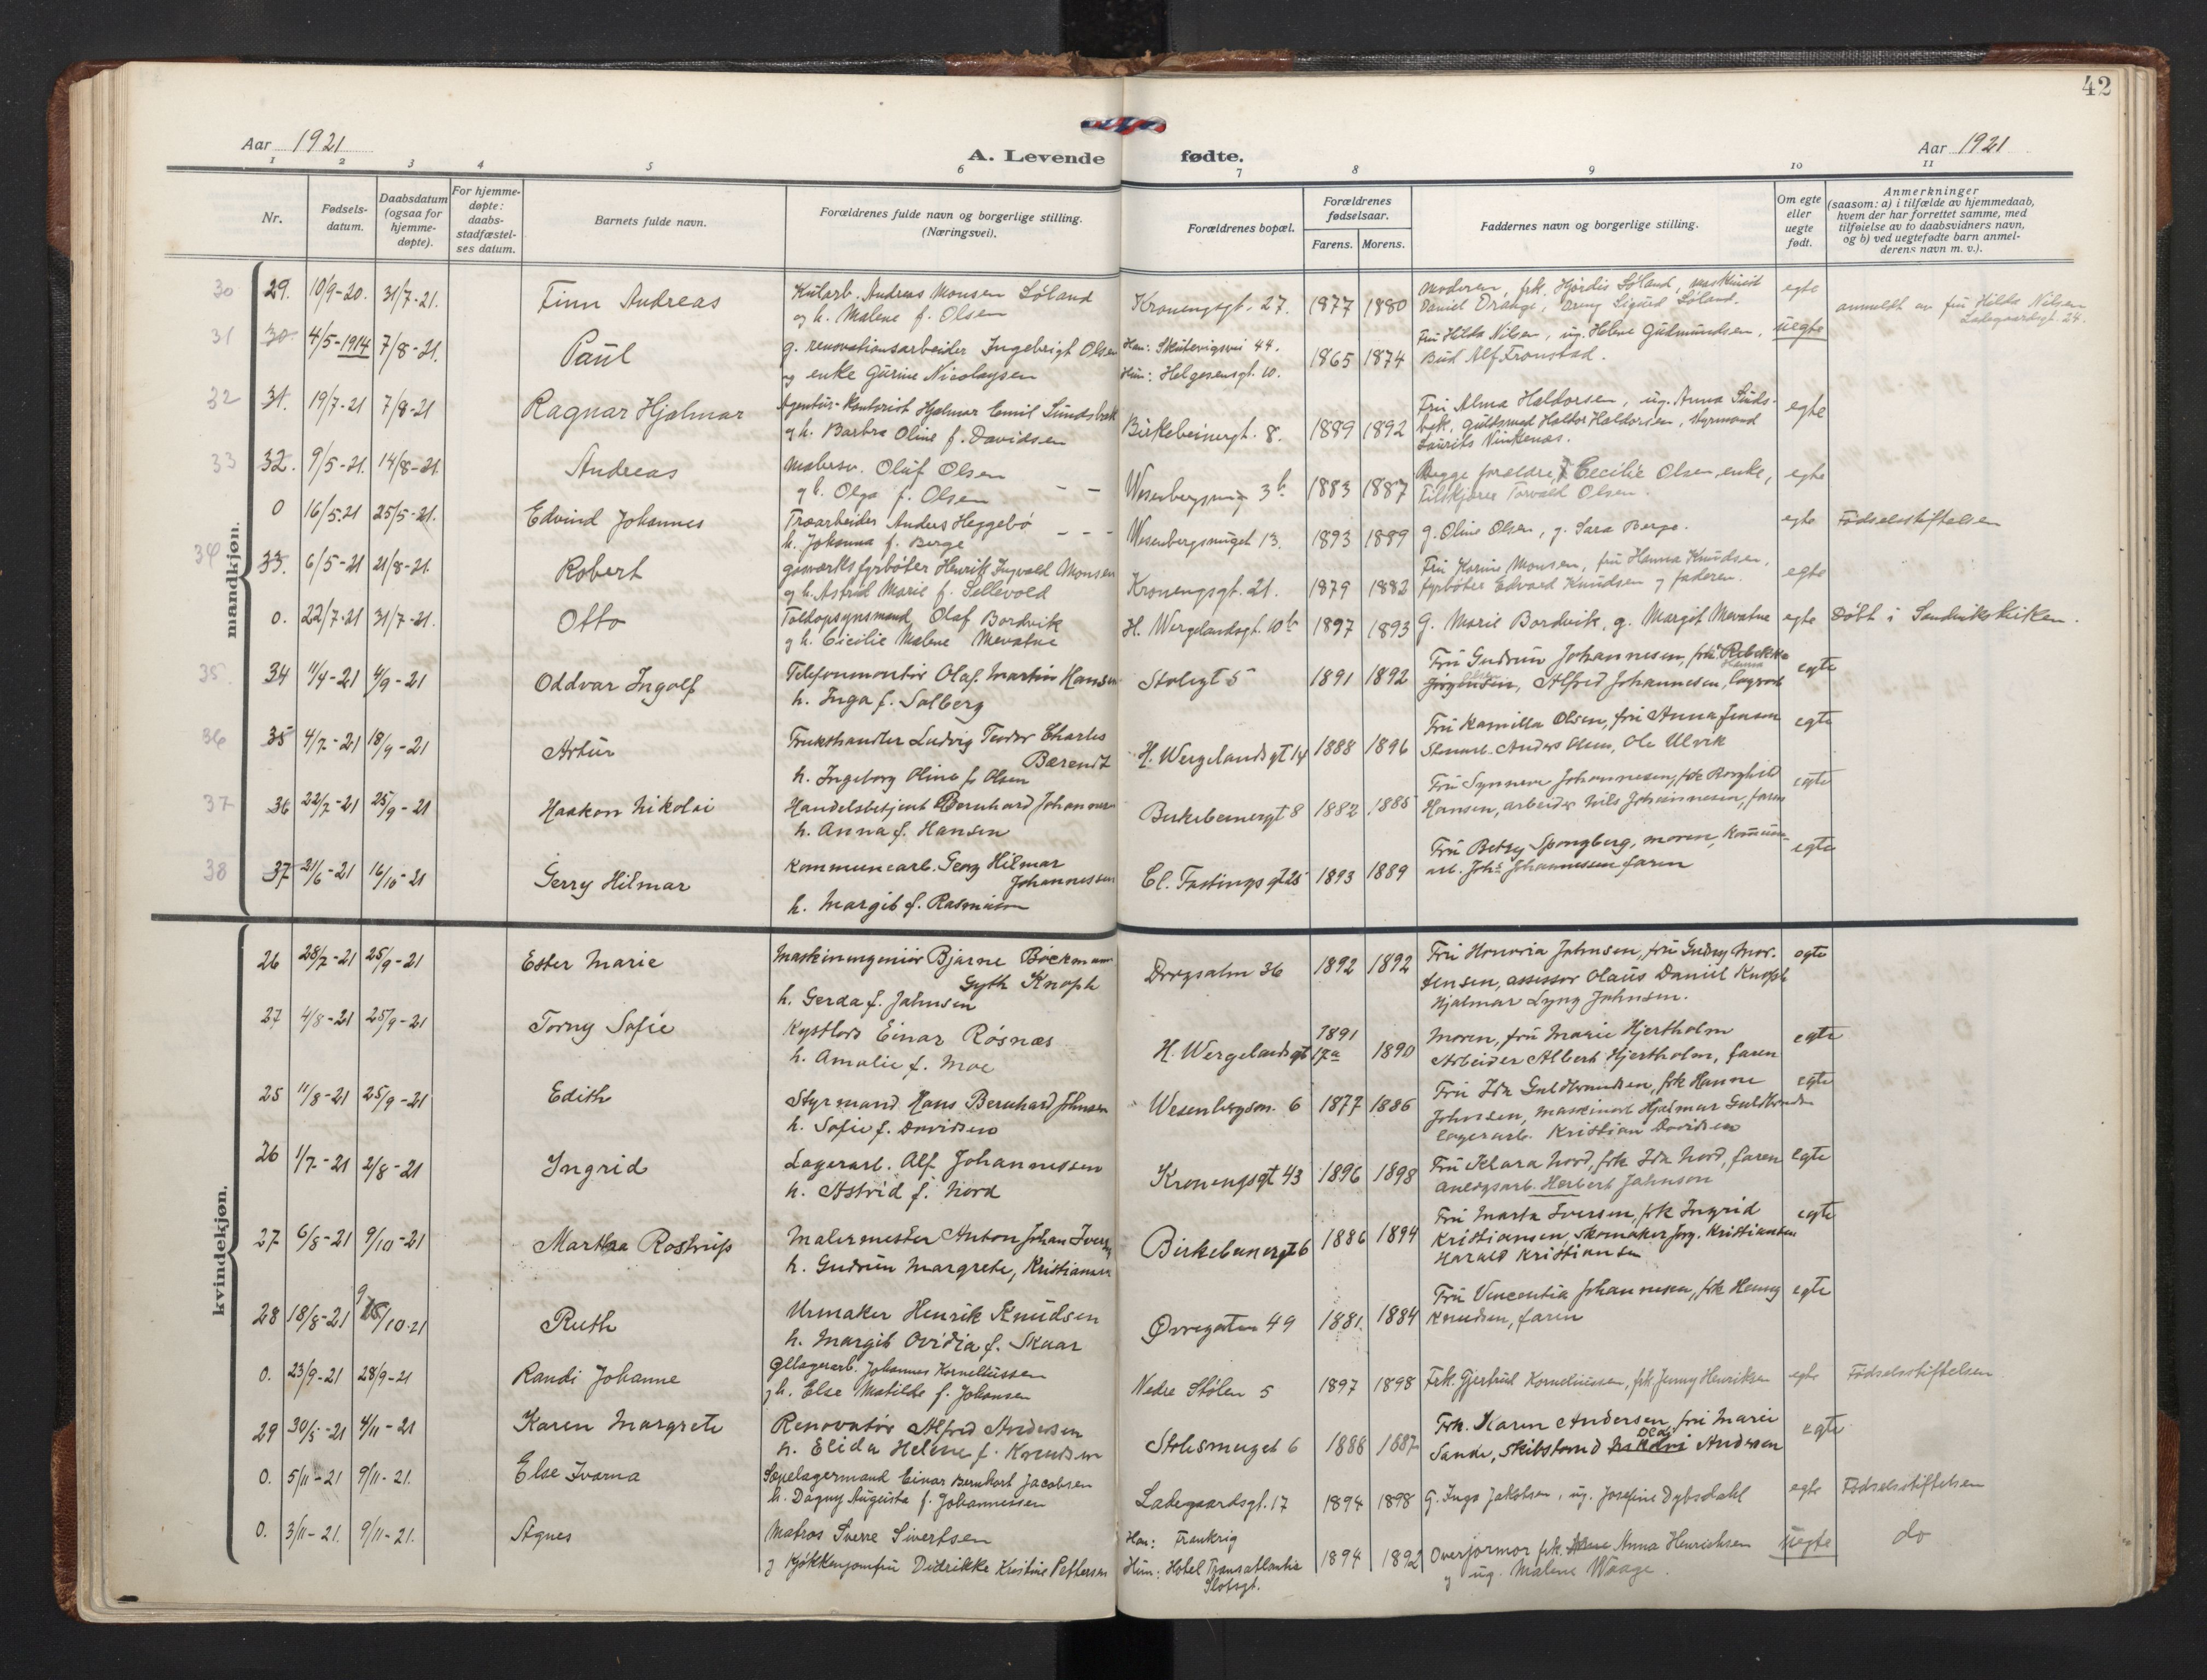 42
Aar 1921
A. Levende fødte.
Aar 1921
1 2 3 4 5 6 7 8 9 10 11
Nr.
Fødsels-
datum.
Daabsdatum
(ogsaa for
hjemme-
døpte).
For hjemme-
døpte:
daabs-
stadfæstel-
ses datum.
Barnets fulde navn.
Forældrenes fulde navn og borgerlige stilling.
(Næringsvei).
Forældrenes bopæl.
Forældrenes
fødselsaar.
Farens. Morens.
Faddernes navn og borgerlige stilling.
Om egte
eller
uegte
født.
Anmerkninger
(saasom: a) i tilfælde av hjemmedaab,
hvem der har forrettet samme, med
tilføielse av to daabsvidners navn,
og b) ved uegtefødte barn anmel-
derens navn m. v.).
mandkjøn.
30 29. 10/9-20. 31/7-21. Finn Andreas
Kularb. Andreas Monsen Søland
og h. Malene f. Olsen
Kronengsgt. 27. 1877 1880
Moderen, frk. Hjördis Söland, maskinist
Daniel Drange, dreng Sigurd Söland.
egte
31 30 4/5-1914 7/8-21. Paul
g. renovationsarbeider Ingebrigt Olsen
og enke Gurine Nicolaysen
Han: Skuteviksvei 44.
Hun: Helgesensgt. 10.
1865 1874
Fru Hilda Nilsen, ug. Helene Gudmundsen,
Bud Alf Tronstad.
uegte
anmeldt av fru Hilda Nilsen
Ladegaardsgt. 24.
32 31. 19/7-21 7/8-21 Ragnar Hjalmar
Agentur-kontorist Hjalmar Emil Sundsbak
og h. Barbra Oline f. Davidsen
Birkebeinergt. 8. 1889 1892
Fru Alma Haldorsen, ug. Anna Sunds-
bak, guldsmed Haldor Haldorsen, styrmand
Laurits Vinkenas.
egte
33 32. 9/5-21. 14/8-21. Andreas
Mabesv. Oluf Olsen
og h. Olga f. Olsen
Wesenbergsmug 3b 1883 1887
Begge foreldre, Cecilie Olsen enke,
Torvald Olsen.
egte
0 16/5.21 25/5-21. Edvind Johannes
Træarbeider Anders Heggebö
h. Johanna f. Berge
Wesenbergsmuget 13. 1893 1889
g. Oline Olsen, g. Sara Berge.
egte Fødselsstiftelsen
34 33. 6/5-21 21/8-21. Robert
gasverksfyrböter Henrik Ingvald Monsen
og h. Astrid Marie f. Sellevold
Kronengsgt. 21. 1879 1882
Fru Karine Monsen, fru Hanna Knudsen,
fyrböter Edvard Knudsen og faderen.
egte
0. 22/7-21 31/7-21. Otto
Toldopsynsmand Olaf Bordvik
og h. Cicilie Malene Mevatne
H. Wergelandsgt. 10b 1897 1893
G. Marie Bordvik, g. Margit Mevatne
egte Döbt i Sandvikskirken.
35. 34 11/4-21 4/9-21 Oddvar Ingolf
Telefonmontör Olaf Martin Hansen
h. Inga f. Solberg
Stølegt 5 1891 1892
Fru Gudrun Johannesen, frk. Rebekka
Hanna
Jörgensen, Alfred Johannesen, lagerarb
egte
36 35 4/7-21 18/9-21 Artur
Frukthandler Ludvig Teodor Charles
Bærendt
h. Ingeborg Oline f. Olsen
H. Wergelandsgt 14 1888 1896
Fru Kamilla Olsen, fru Anna Jensen
Stenarb. Anders Olsen, Ole Ulvik
egte
37 36 22/7-21 25/9-21 Haakon Nikolai
Handelsbetjent Bernhard Johannesen
h. Anna f. Hansen
Birkebeinergt 8 1882 1885
Fru Synneve Johannesen, frk Borghild
Hansen, arbeider Nils Johannesen, faren
egte
38 37 21/6-21 16/10-21 Gerry Hilmar
Kommunearb. Georg Hilmar
Johannessen
h. Margit f. Rasmussen
Cl. Fastingsgt 25 1893 1889
Fru Betsy Spongberg, moren, kommune-
arb. Johs Johannessen faren
egte
kvindekjøn.
26 28/7-21 25/9-21 Ester Marie
Maskiningeniør Bjarne Böckmann
Gyth Knoph
h. Gerda f. Jahnsen
Dregsalm 36 1892 1892
Fru Honoria Jahnsen, fru Gudny Mor-
tensen, assessor Olaus Daniel Knoph
Hjalmar Lyng Jahnsen.
egte
27 4/8-21 25/9-21 Torny Sofie
Kystlods Einar Røsnæs
h. Amalie f. Moe
H. Wergelandsgt 17a 1891 1890
Moren, fru Marie Hjertholm
Arbeider Albert Hjertholm, faren
egte
25 11/8-21 25/9-21 Edith
Styrmand Hans Bernhard Johnsen
h. Sofie f. Davidsen
Wesenbergsm. 6 1877 1886
Fru Ida Guldbrandsen, frk Hanne
Johnsen, maskinarb Hjalmar Guldbrandsen
lagerarb. Kristian Davidsen
egte
26 1/7-21 2/8-21 Ingrid
Lagerarb. Alf Johannessen
h. Astrid f. Nord
Kronengsgt 43 1896 1898
Fru Klara Nord, frk Ida Nord, faren
anlegsarb. Herbert Johnson
egte
27 6/8-21 9/10-21 Martha Rostrup
Malermester Anton Johan Iversen
h. Gudrun Margrete, Kristiansen
Birkebeinergt 6 1886 1894
Fru Marta Iversen, frk Ingrid
Kristiansen, skomaker Jørg. Kristiansen
Harald Kristiansen
egte
28 18/8-21 9/10-21 Ruth
Urmaker Henrik Knudsen
h. Margit Ovidia f. Skaar
Øvregaten 49 1881. 1884
Fru Vincentia Johannesen, frk Henny
Knudsen, faren
egte
0. 23/9-21 28/9-21 Randi Johanne
Øllagerarb. Johannes Korneliussen
og h. Else Matilde f. Johansen
Nedre Stölen 5 1897 1898
Frk. Gjertrud Korneliussen, frk Jenny Henriksen
egte Fødselsstiftelsen
29 30/5-21 4/11-21 Karen Margrete
Renovatör Alfred Andersen
h. Elida Helene f. Knudsen
Stølesmuget 6 1888 1887
Frk. Karen Andersen, fru Marie
Sande, Skibstømd Andersen
egte
0. 5/11-21 9/11-21. Else Ivarna
Sæpelagermand Einar Bernhart Jacobsen
h. Dagny Augusta f. Johannessen
Ladegaardsgt. 17 1894 1898
G. Inga Jakobsen, ug. Josefine Dybsdahl
egte Fødselsstiftelsen
0. 3/11-21. 9/11-21. Agnes
Matros Sverre Sivertsen
og kjøkkenjomfru Didrikke Kristine Pettersen
Han: Frankrig
Hun: Hotel Transatlantic
Slotsgt.
1894 1892
Overjormor frk. Anna Henrichsen
og ug. Malene Waage.
uegte do